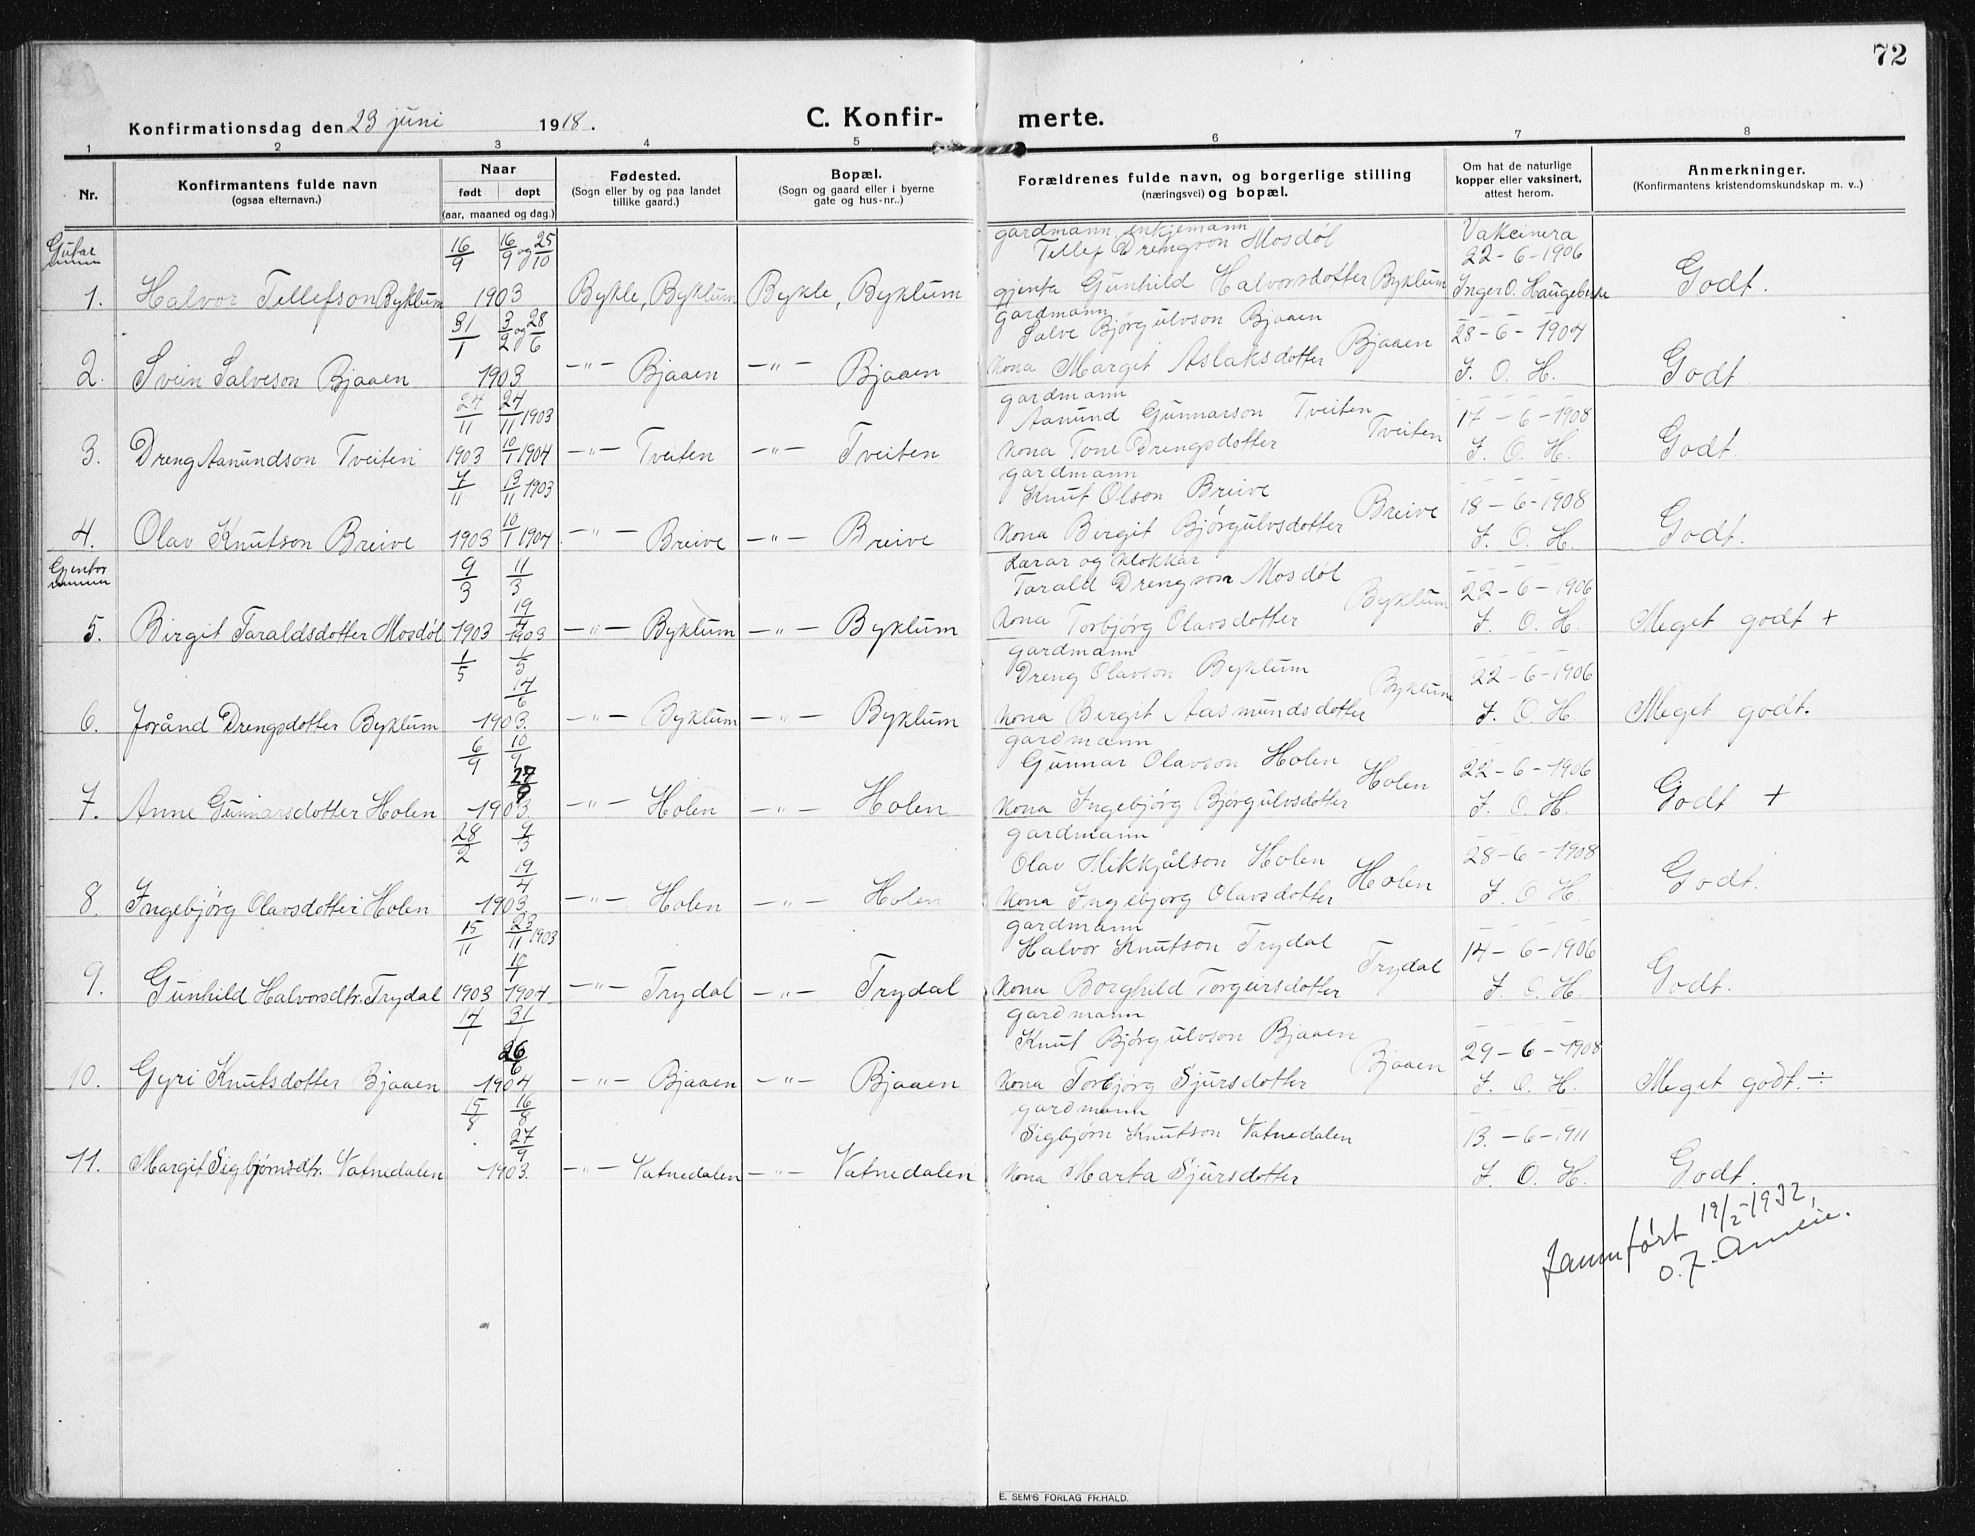 72
Konfirmationsdag den 23 juni 1918.
C. Konfirmerte.
1 2 3 4 5 6 7 8
Nr.
Konfirmantens fulde navn
(ogsaa efternavn.)
Naar
født døpt
(aar, maaned og dag.)
Fødested.
(Sogn eller by og paa landet
tillike gaard.)
Bopæl.
(Sogn og gaard eller i byerne
gate og hus-nr..)
Forældrenes fulde navn, og borgerlige stilling
(næringsvei) og bopæl.
Om hat de naturlige
kopper eller vaksinert,
attest herom.
Anmerkninger.
(Konfirmantens kristendomskundskap m. v..)
Gutar
gardmann, enkjemann Vakcinera
16/9 16/9 og 25/10 Tellef Drengson Mosdøl 22-6-1906
1. Halvor Tellefson Byklum 1903 Bykle, Byklum Bykle, Byklum gjenta Gunhild Halvorsdotter Byklum Inger O. Godt.
gardmann
31/1 3/2 og 28/6 Salve Bjørgulvson Bjaaen 28-6-1904
2. Svein Salveson Bjaaen 1903 -"- Bjaaen -"- Bjaaen Kona Margit Aslaksdotter Bjaaen I. O. H. Godt.
gardmann
24/11 24/11 1903 Aanund Gunnarson Tveiten 17-6-1908
3. Dreng Aanundson Tveiten 1903 10/1 1904 -"- Tveiten -"- Tveiten Kona Tone Drengsdotter Tveiten I. O. H. Godt.
gardmann
7/11 13/11 1903 Knut Olson Breive 18-6-1908
4. Olav Knutson Breive 1903 10/1 1904 -"- Breive -"- Breive Kona Birgit Bjørgulvsdotter Breive I. O. H. Godt.
Gjentor
Lærar og klokkar
9/3 11/3 Tarald Drengson Mosdøl 22-6-1906
19/4
5. Birgit Taraldsdotter Mosdøl 1903 1903 -"- Byklum -"- Byklum Kona Torbjørg Olavsdotter Byklum I. O. H. Meget godt +
gardmann
1/5 1/5 Dreng Olavson Byklum 22-6-1906
14/6
6. Jorånd Drengsdotter Byklum 1903. -"- Byklum -"- Byklum Kona Birgit Aasmundsdotter Byklum I. O. H Meget godt.
gardmann
6/9 10/9 Gunnar Olavson Holen 22-6-1906
27/9
7. Anne Gunnarsdotter Holen 1903. -"- Holen -"- Holen Kona Ingebjørg Bjørgulvsdotter Holen I. O. H. Godt +
gardmann
28/2 9/3 Olav Mikkjålson Holen 28-6-1908
19/4
8. Ingebjørg Olavsdotter Holen 1903. -"- Holen -"- Holen Kona Ingebjørg Olavsdotter Holen I. O. H. Godt.
gardmann
15/11 23/11 1903 Halvor Knutson Trydal 14-6-1906
10/1
9. Gunhild Halvorsdtr. Trydal 1903 1904 -"- Trydal -"- Trydal Kona Borghild Torgeirsdotter Trydal I. O. H. Godt.
gardmann
14/1 31/1 Knut Bjørgulvson Bjaaen 29-6-1908
26/6
10. Gyri Knutsdotter Bjaaen 1904 -"- Bjaaen -"- Bjaaen Kona Torbjørg Sjursdotter Bjaaen I. O. H. Meget godt. ÷
gardmann
15/8 16/8 Sigbjørn Knutson Vatnedalen 13.-6-1911
27/9
11. Margit Sigbjørnsdtr. Vatnedalen 1903. -"- Vatnedalen -"- Vatnedalen Kona Marta Sjursdotter I. O. H. Godt.
Jamnført 19/2-1932,
E. SEM'S FORLAG FR.HALD.